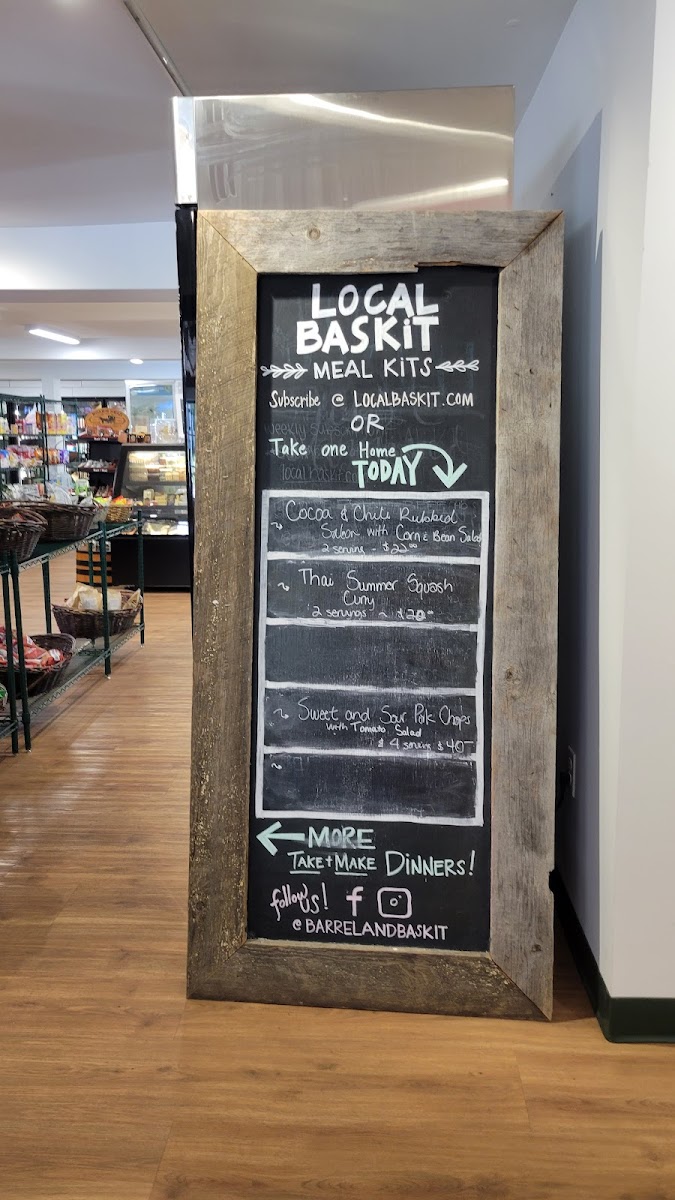 LOCAL
BASKiT
MEAL KITS
Subscribe @ LOCALBASKIT.COM
OR
Take one Home
TODAY
Cocoa & Chili Rubbed
with Corn & Bean Salad
2 serving - $22.00
Thai Summer Squash
Curry
2 servings ~ $20.00
Sweet and Sour Pork Chops
with Tomato Salad
4 serving $40-
MORE
TAKE + MAKE DINNERS!
follow us!
@BARRELANDBASKIT